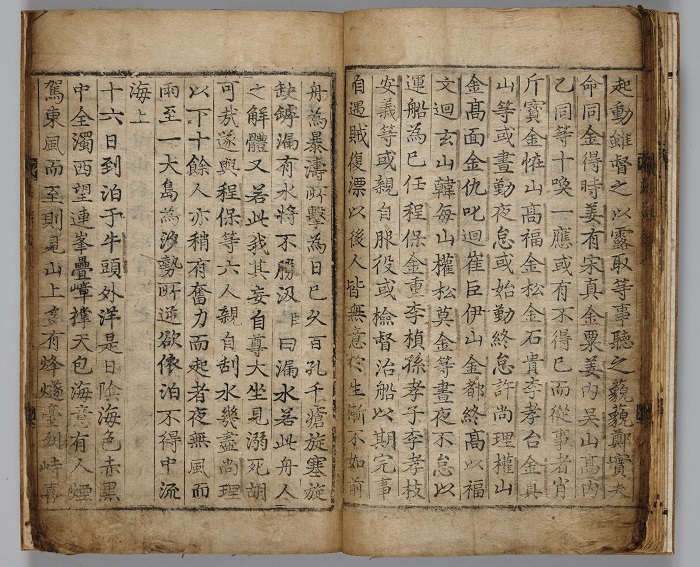 起動雖督之以露取等事聽之藐藐鄭實夫
命同金得時姜有宋真金粟姜內吳山高內
乙同等十喚一應或有不得已而從事者肖
斤寶金恠山高福金松金石貴李孝台金真
山等或晝勤夜怠或始勤終怠許尚理權山
金高面金仇叱廻崔巨伊山金都終高以福
文廻玄山韓每山權松莫金等晝夜不怠以
運船為已任程保金重李楨孫孝子李孝枝
安義等或親自服役或檢督治船以期完事
自遇賊復漂以後人皆無意於生漸不如前
舟為暴濤所擊為日已久百孔千瘡旋塞旋
缺罅漏有水將不勝汲臣曰漏水若此舟人
之解體又若此我其妄自尊大坐見溺死胡
可哉遂與程保等六人親自刮水幾盡尚理
以下十餘人亦稍有奮力而起者夜無風而
雨至一大島為汐勢所逆欲泊不得中流
海上
十六日到泊于牛頭外洋是日陰海色赤黑
中全濁西望連峯疊嶂撑天包海意有人煙
駕東風而至則見山上多有烽燧臺列峙喜